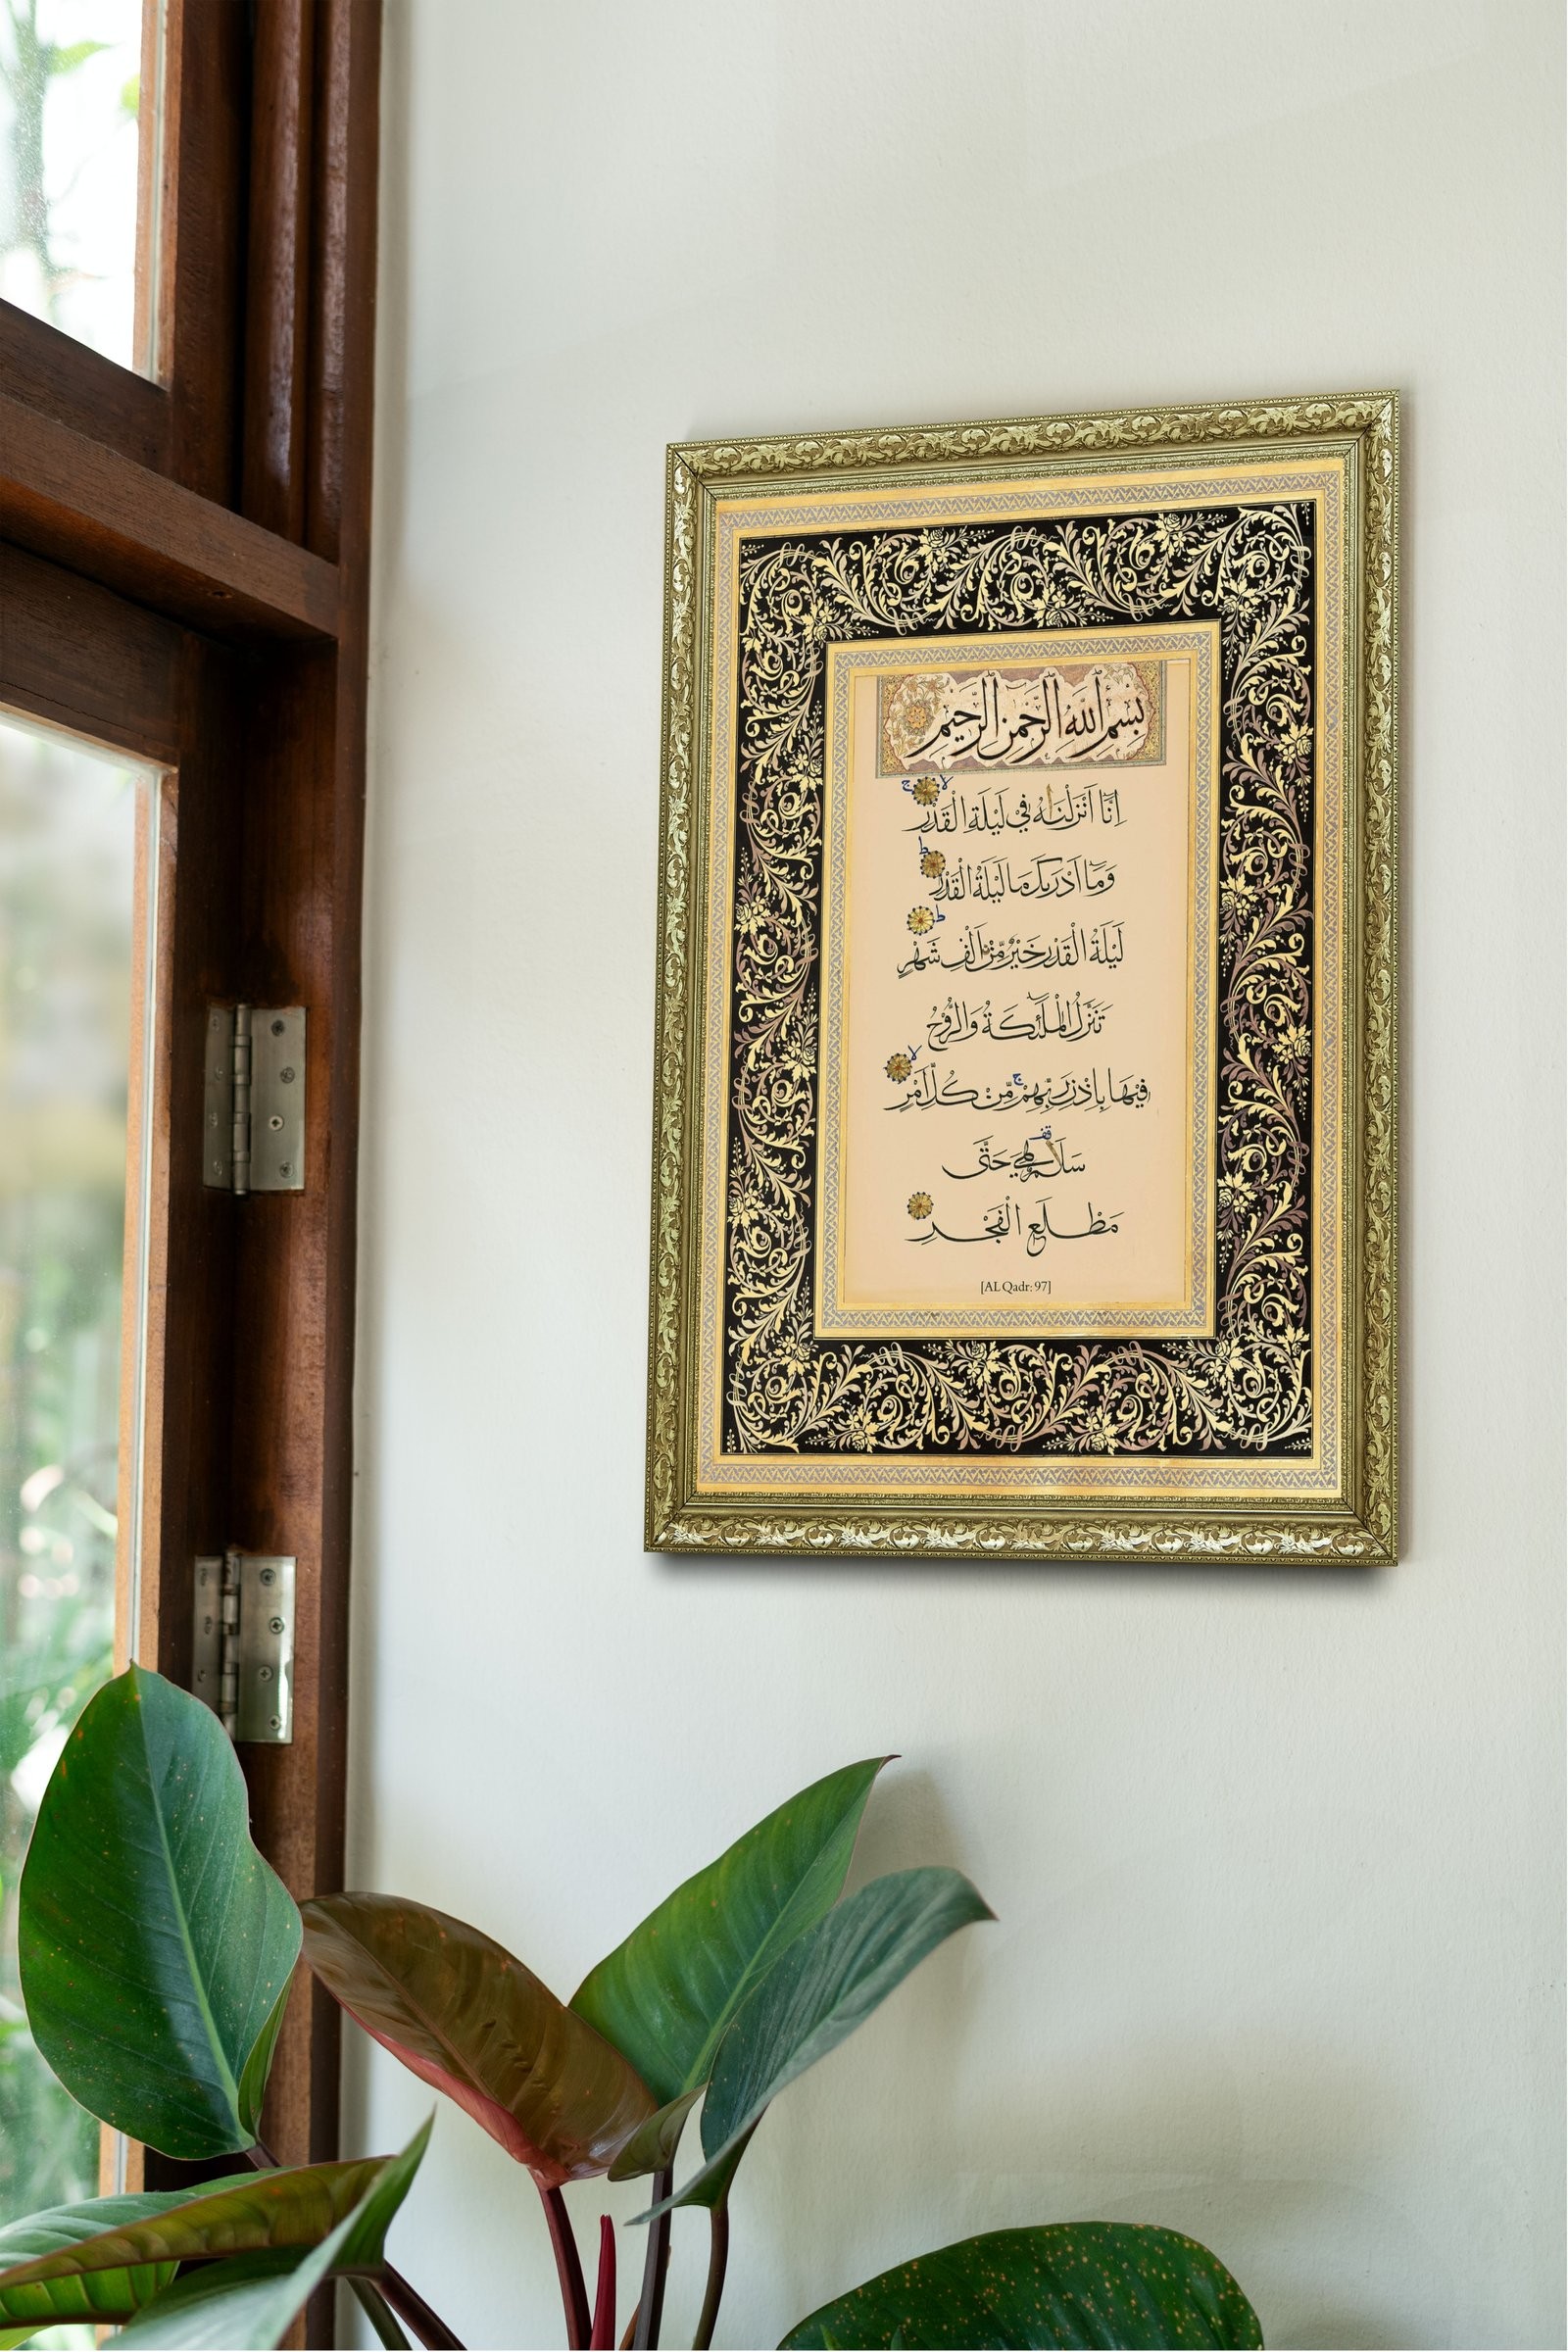 بِسْمِ اللّٰهِ الرَّحْمٰنِ الرَّحِيْمِ
اِنَّا اَنْزَلْنَاهُ فِيْ لَيْلَةِ الْقَدْرِ
وَمَا اَدْرٰىكَ مَا لَيْلَةُ الْقَدْرِ
لَيْلَةُ الْقَدْرِ خَيْرٌ مِّنْ اَلْفِ شَهْرٍ
تَنَزَّلُ الْمَلٰٓئِكَةُ وَالرُّوْحُ
فِيْهَا بِاِذْنِ رَبِّهِمْ مِّنْ كُلِّ اَمْرٍ
سَلَامٌ هِيَ حَتّٰى
مَطْلَعِ الْفَجْرِ
[AL Qadr: 97]